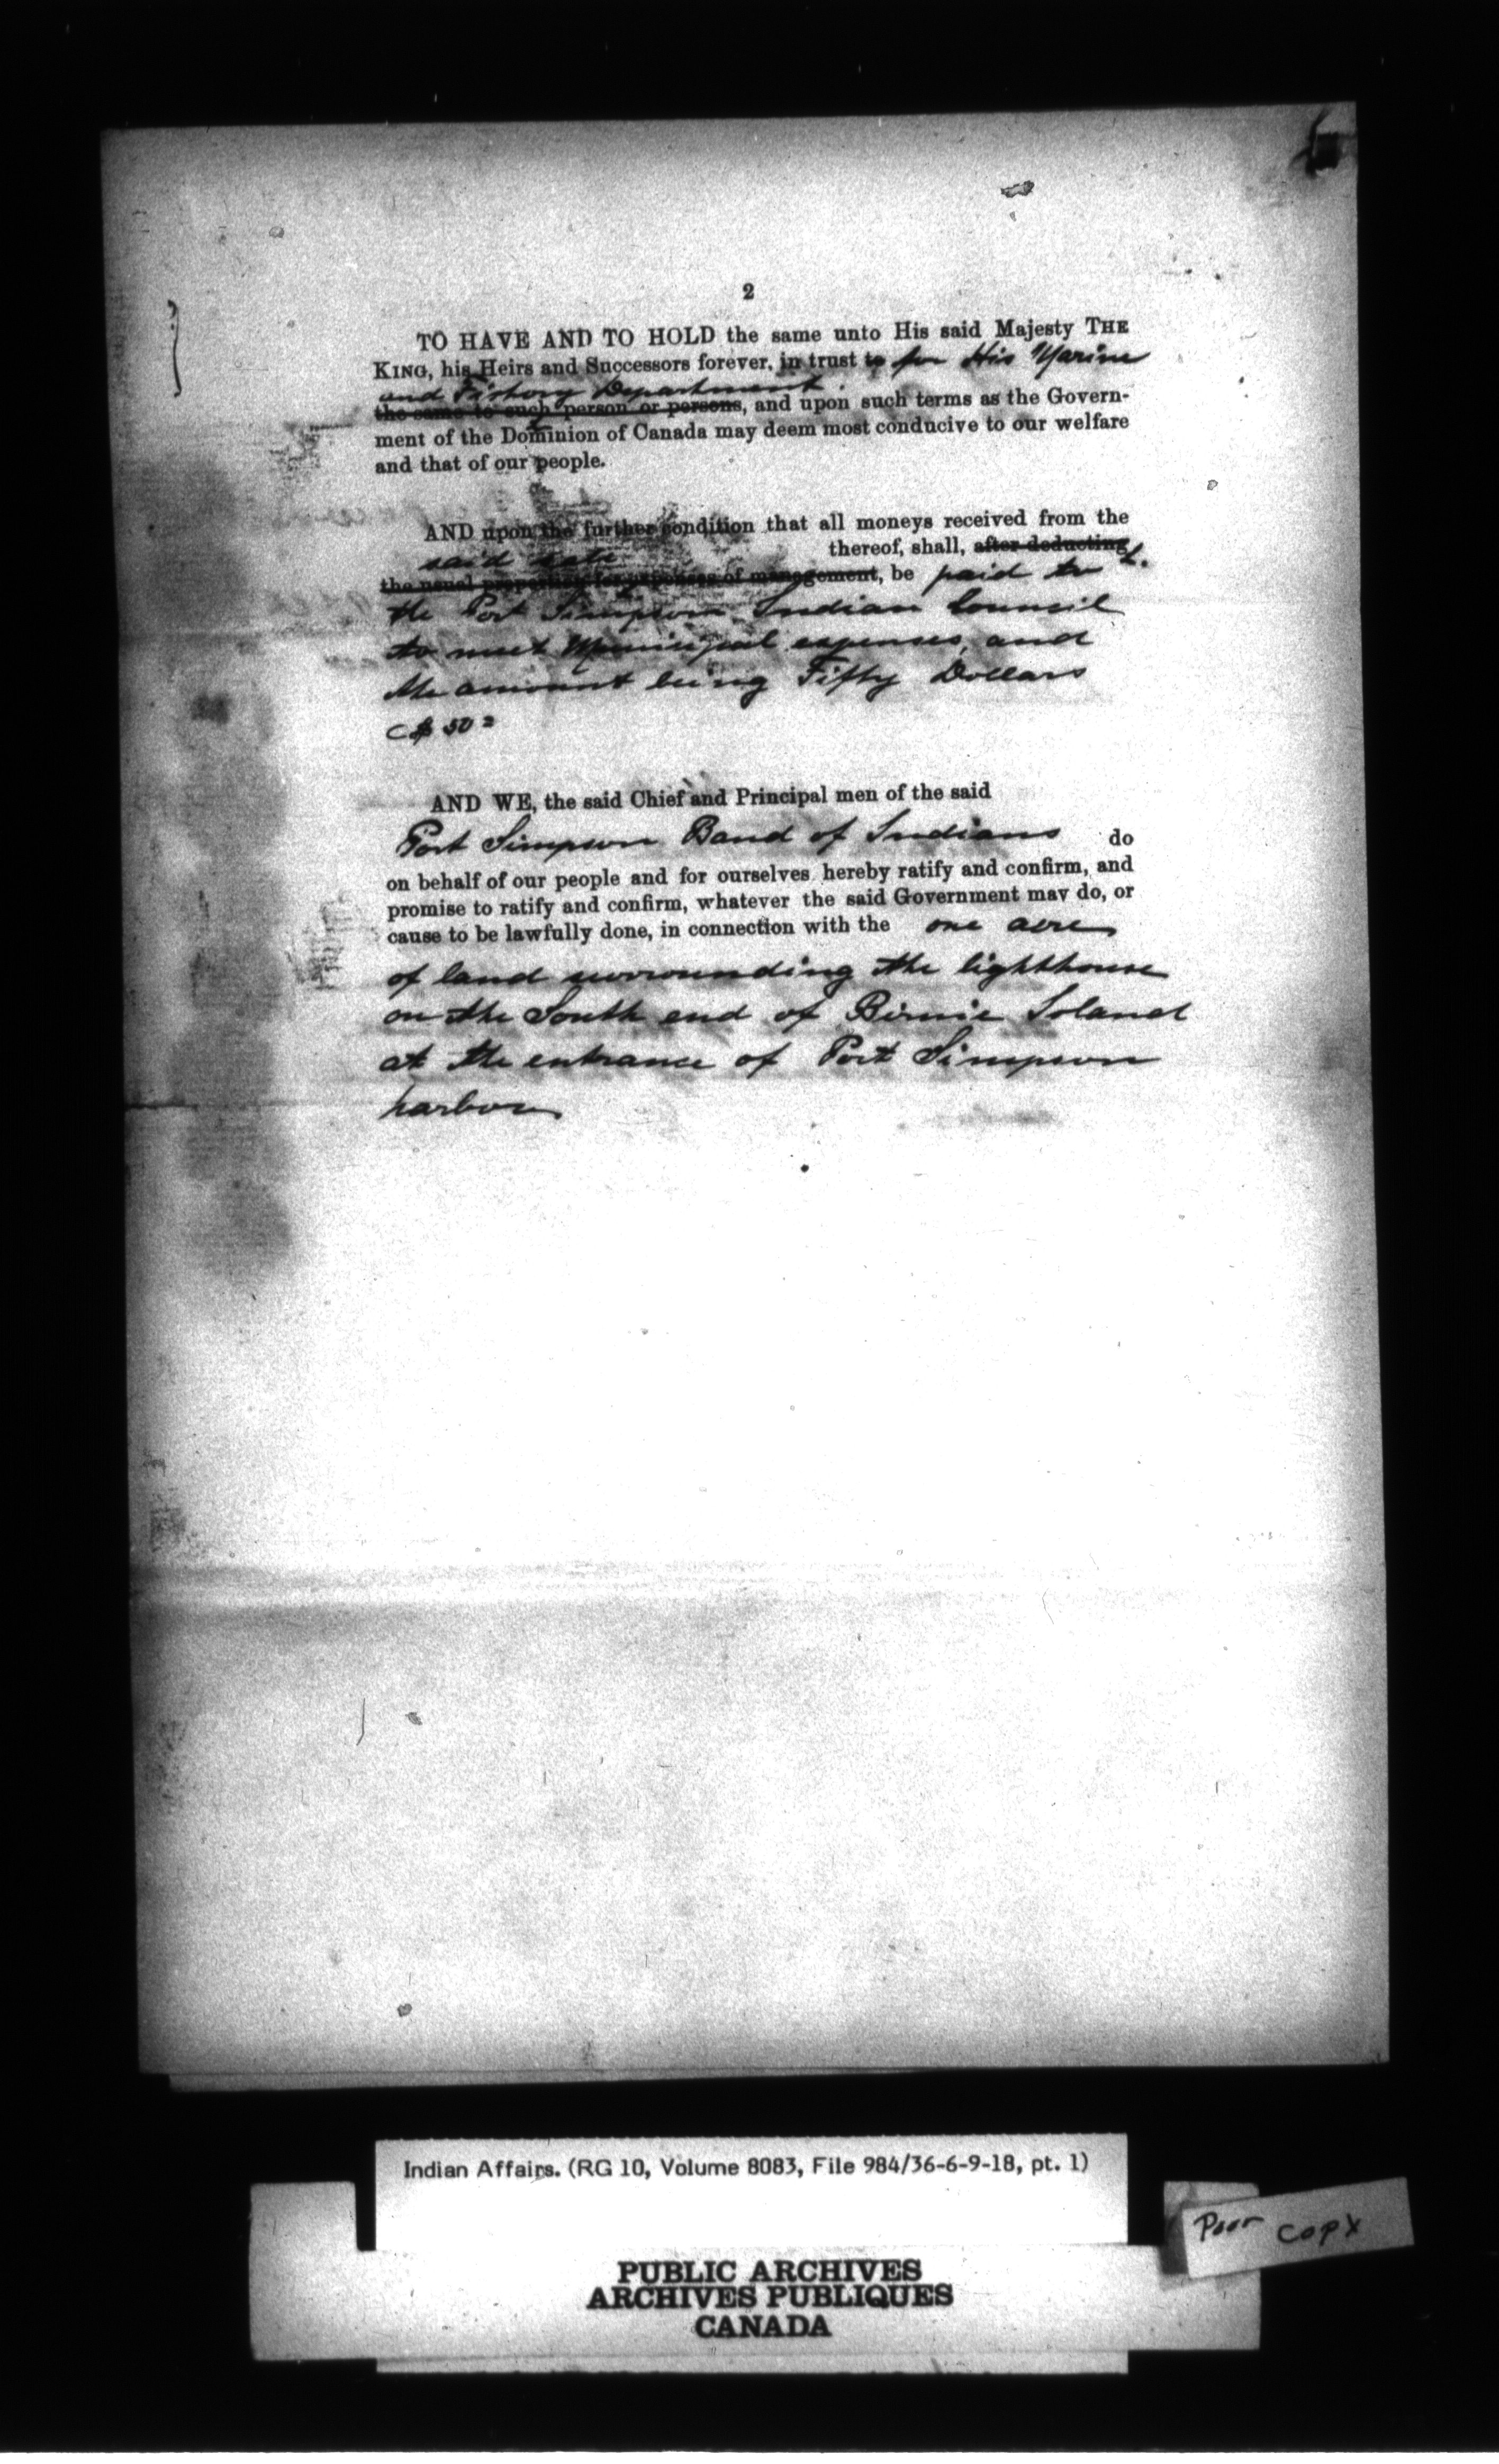 2
TO HAVE AND TO HOLD the same unto His said Majesty THE
KING, his Heirs and Successors forever, in trust to for His Marine
and Fishery Department
the same to such person or persons, and upon such terms as the Govern-
ment of the Dominion of Canada may deem most conducive to our welfare
and that of our people.
AND upon the further condition that all moneys received from the
said sale thereof, shall, after deducting
the usual proportion for expenses of management, be paid to
the Port Simpson Indian Council
to meet Municipal expenses, and
the amount being Fifty Dollars
($ 50
AND WE, the said Chief and Principal men of the said
Port Simpson Band of Indians do
on behalf of our people and for ourselves hereby ratify and confirm, and
promise to ratify and confirm, whatever the said Government may do, or
cause to be lawfully done, in connection with the one acre
of land surrounding the lighthouse
on the South end of Birnie Island
at the entrance of Port Simpson
harbour
Indian Affairs. (RG 10, Volume 8083, File 984/36-6-9-18, pt. 1)
Poor Copy
PUBLIC ARCHIVES
ARCHIVES PUBLIQUES
CANADA